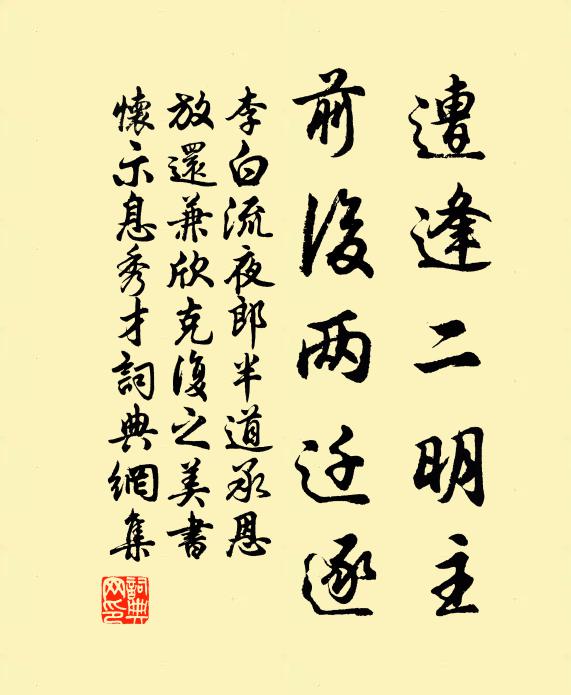 遭逢二明主
前後兩迁逐
李白流夜郎半道承恩
放還兼欣克復之美書
懷示息秀才詞典網集
詞典網印